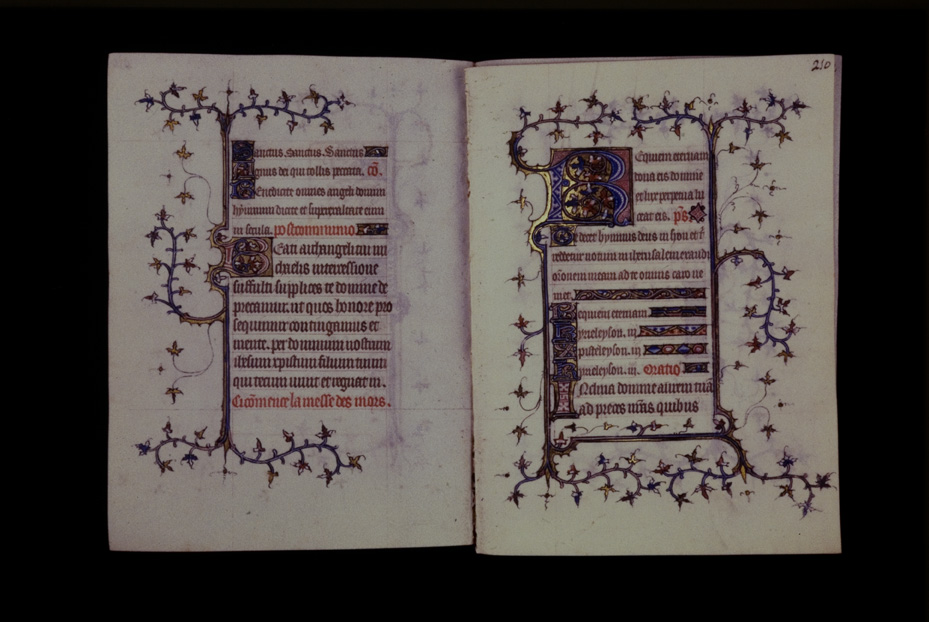 Sanctus. Sanctus. Sanctus
Agnus dei qui tollis peccata. cõ.
Benedicite omnes angeli domini
hymnum dicite et superexaltate eum
in secula. postcommunio
Beati archangeli tui mi
chaelis intercessione
suffulti supplices te domine de
precamur. ut quos honore pro
sequimur contingamus et
mente. per dominum nostrum
ihesum xpistum filium tuum
qui tecum vivit et regnat in.
Ci cõmence la messe des mors.
210
Requiem eternam
dona eis domine
et lux perpetua lu
ceat eis. ps.
Te decet hymnus deus in syon et t̃
reddetur votum in iherusalem exaudi
orõnem meam ad te omnis caro ve
niet.
Requiem eternam
kyrieleyson. iij
xpisteleyson. iij
kyrieleyson. iij. Oratio
Inclina domine aurem tuã
ad preces nr̃as quibus